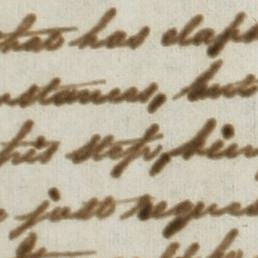 that has elaps
nstances, but
this step, bein
just reques